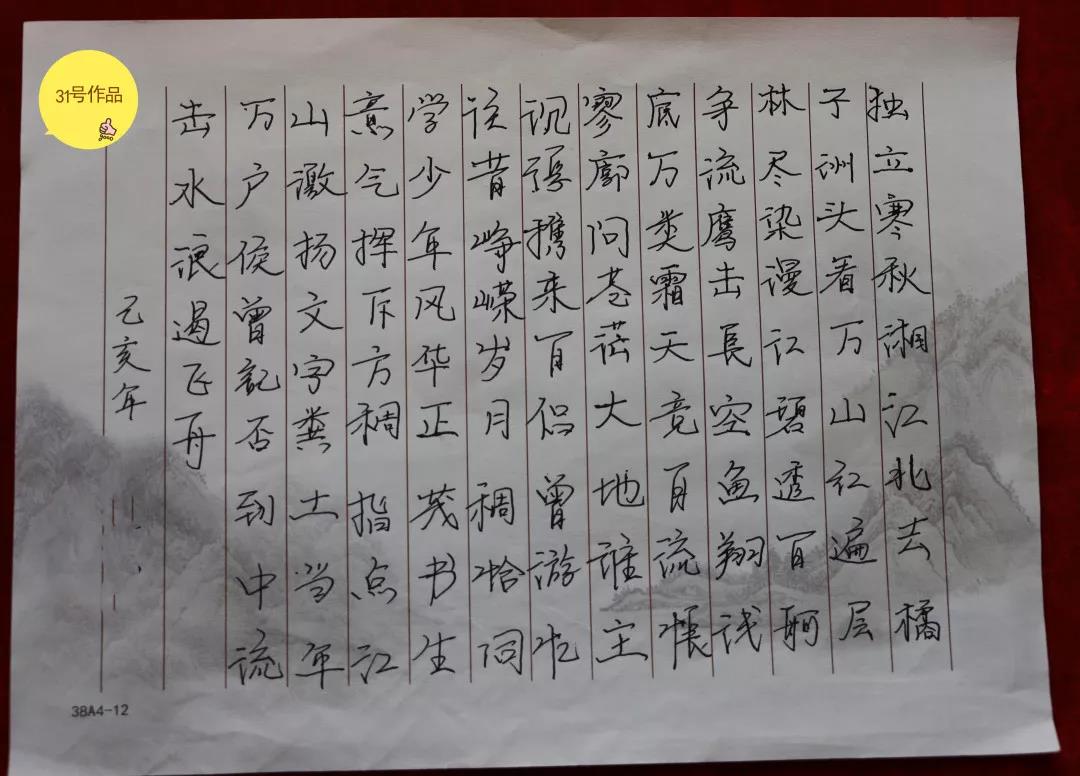 31号作品
独立寒秋湘江北去橘
子洲头看万山红遍层
林尽染漫江碧透百舸
争流鹰击長空鱼翔浅
底万类霜天竞百流怅
寥廓问苍茫大地谁主
沉浮携来百侣曾游忆
往昔峥嵘岁月稠恰同
学少年风华正茂书生
意气挥斥方稠指点江
山激扬文字粪土当年
万户侯曾記否到中流
击水浪遏飞舟
己亥年
38A4-12